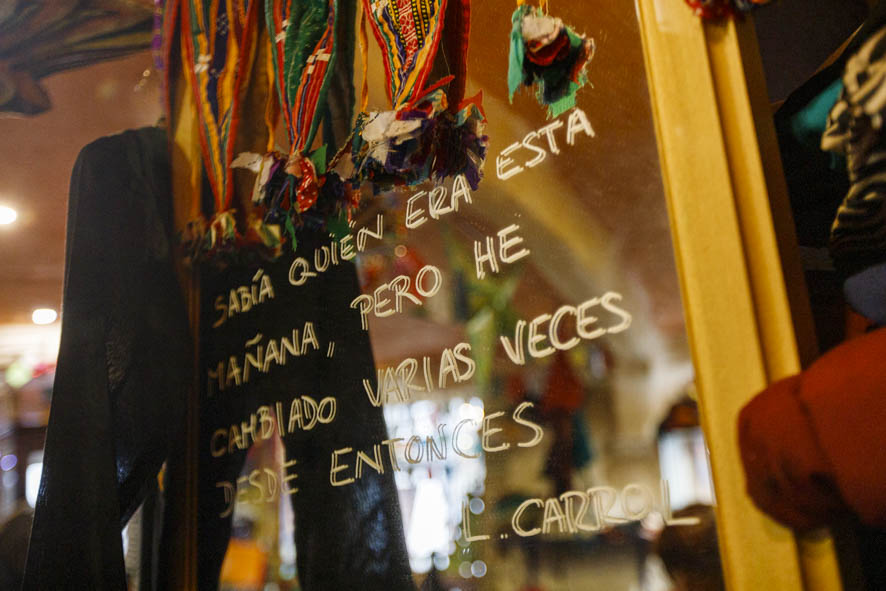 SABÍA QUIÉN ERA ESTA
MAÑANA, PERO HE
CAMBIADO VARIAS VECES
DESDE ENTONCES
L. CARROL